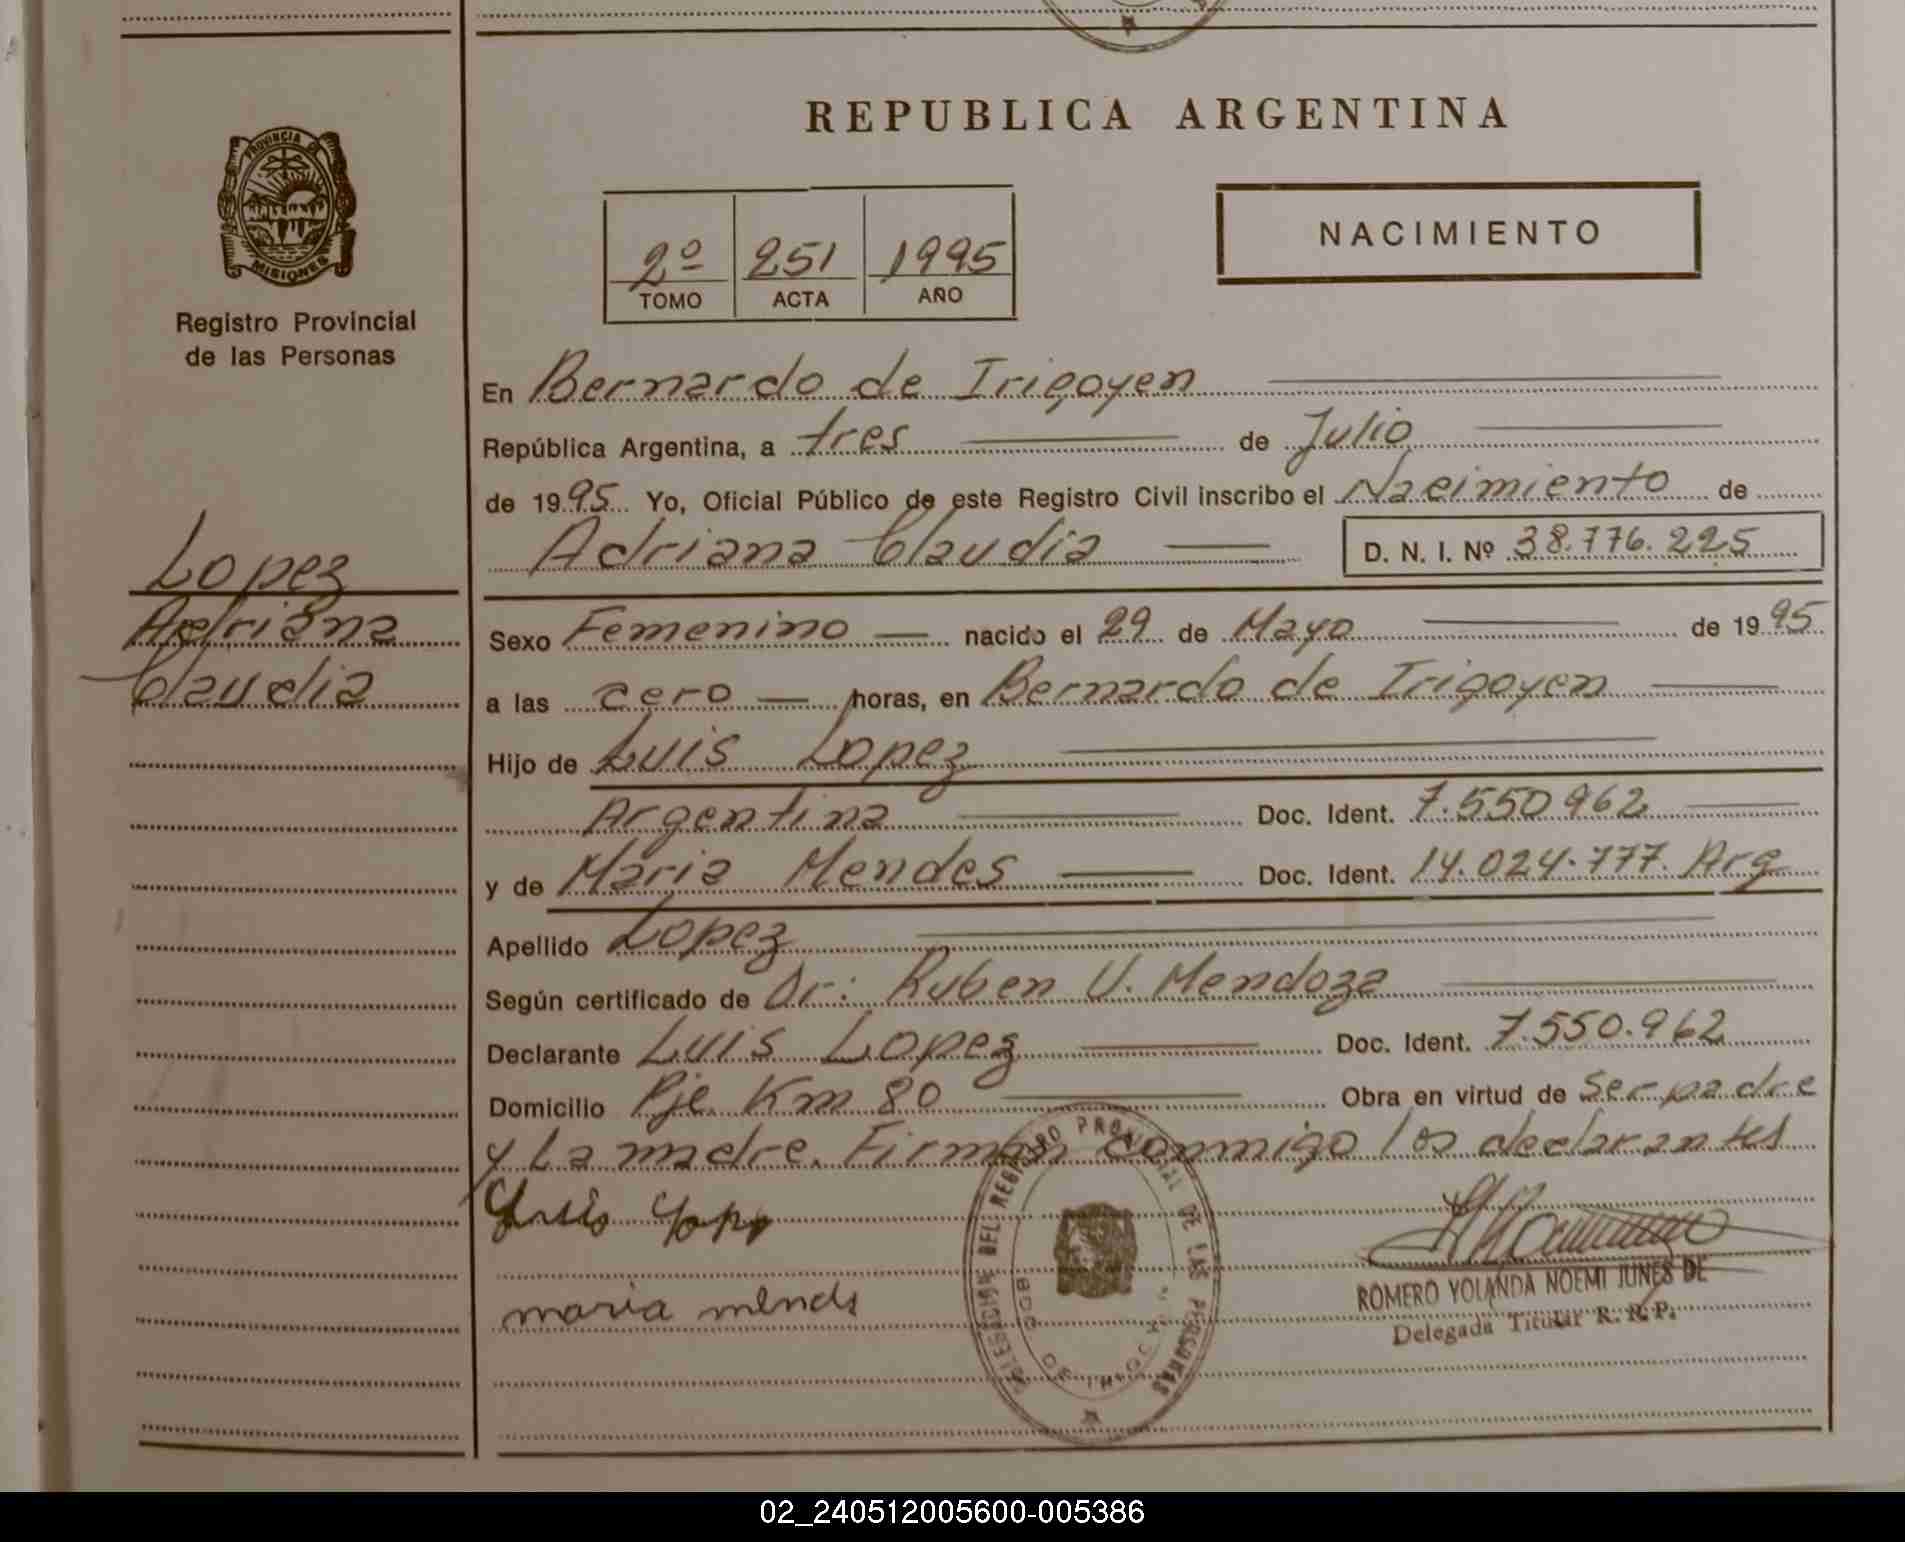 REPUBLICA ARGENTINA
PROVINCIA DE
MISIONES
Registro Provincial
de las Personas
2º 251 1995
TOMO ACTA AÑO
NACIMIENTO
En Bernardo de Irigoyen
República Argentina, a tres de Julio
de 1995 Yo, Oficial Público de este Registro Civil inscribo el Nacimiento de
Adriana Claudia D. N. I. Nº 38.776.225
Lopez
Adriana
Claudia
Sexo Femenino nacido el 29 de Mayo de 1995
a las cero horas, en Bernardo de Irigoyen
Hijo de Luis Lopez
Argentina Doc. Ident. 7.550962
y de Maria Mendes Doc. Ident. 14.024.777. Arg
Apellido Lopez
Según certificado de Dr: Ruben U. Mendoza
Declarante Luis Lopez Doc. Ident. 7.550.962
Domicilio Pje Km 80 Obra en virtud de Ser padre
y La madre. Firman conmigo los declarantes
Luis
maria
DEL REGISTRO PROVINCIAL DE LAS PERSONAS
ROMERO YOLANDA NOEMI JUNES DE
Delegada Titular R. R. P.
02_240512005600-005386